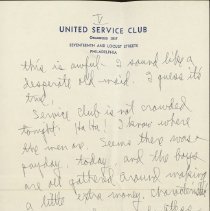 V
UNITED SERVICE CLUB
SEVENTEENTH AND LOCUST STREETS
PHILADELPHIA
this is awful. I sound like a
desperate old maid. I guess its
true.
Service club is not crowded
tonight. Ha Ha! I know where
the men are. Seems there was a
payday, today, and the boys
are all gathered around making
a little extra money.